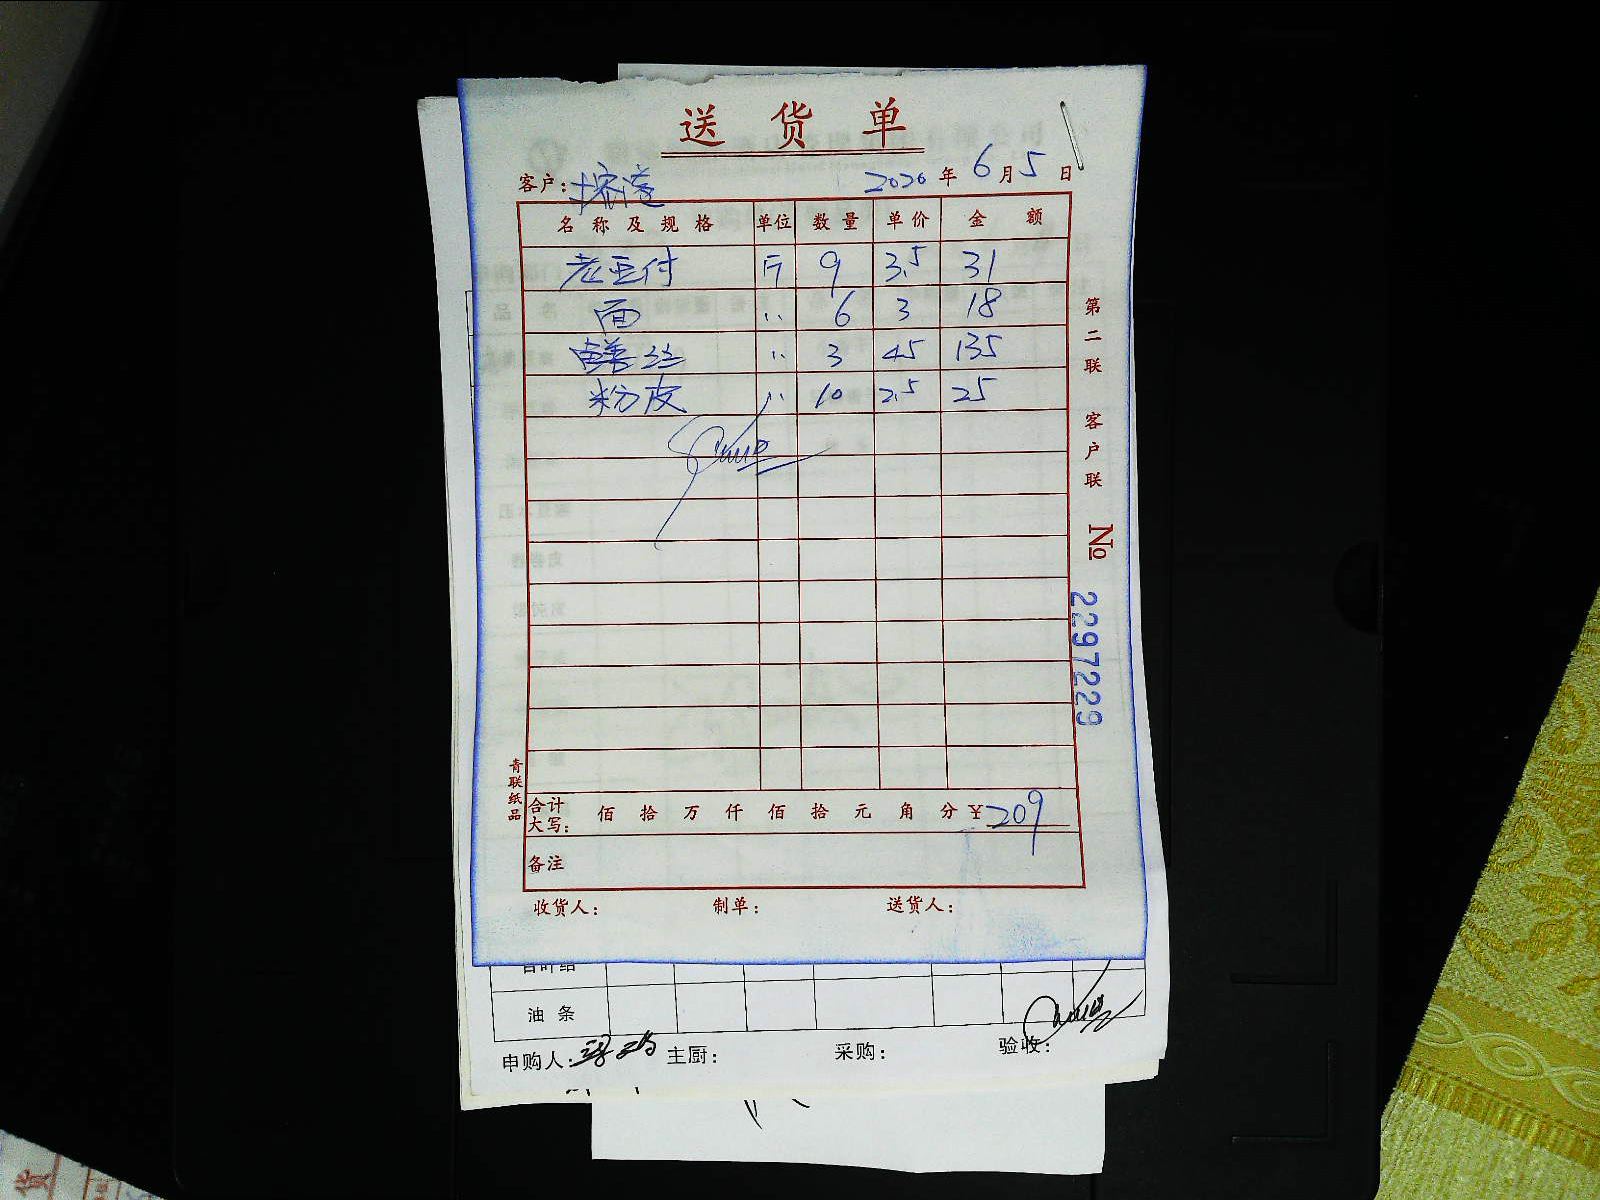 送货单
客户: 2020年6月5日
名称及规格 单位 数量 单价 金额
老豆付 斤 9 3.5 31
面 〃 6 3 18
〃 3 45 135
粉皮 〃 10 2.5 25
第二联 客户联 № 2297229
青联纸品
合计大写: 佰 拾 万 仟 佰 拾 元 角 分 ¥209
备注
收货人: 制单: 送货人:
油条
申购人: 主厨: 采购: 验收:
货